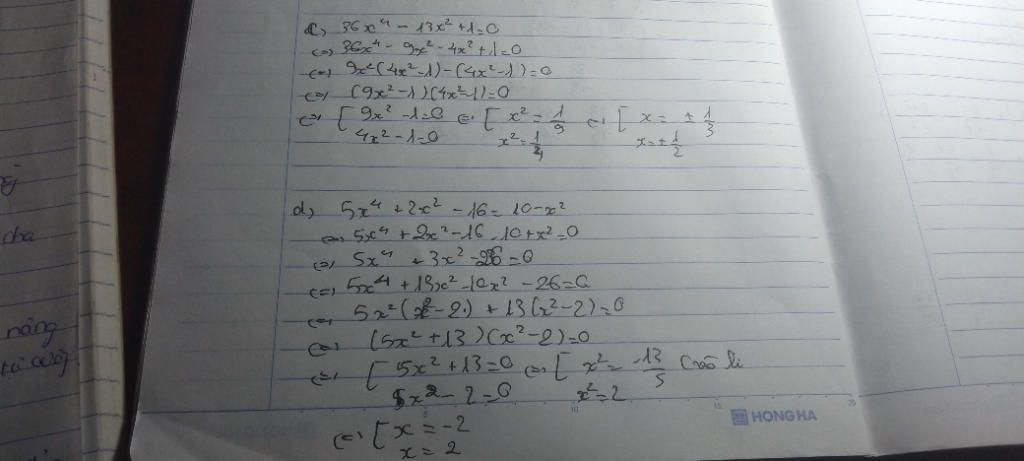 c) 36x⁴ - 13x² + 1 = 0
<=> 36x⁴ - 9x² - 4x² + 1 = 0
<=> 9x²(4x² - 1) - (4x² - 1) = 0
<=> (9x² - 1)(4x² - 1) = 0
<=> [ 9x² - 1 = 0 <=> [ x² = 1/9 <=> [ x = ± 1/3
4x² - 1 = 0 x² = 1/4 x = ± 1/2
d) 5x⁴ + 2x² - 16 = 10 - x²
<=> 5x⁴ + 2x² - 16 - 10 + x² = 0
<=> 5x⁴ + 3x² - 26 = 0
<=> 5x⁴ + 13x² - 10x² - 26 = 0
<=> 5x²(x² - 2) + 13(x² - 2) = 0
<=> (5x² + 13)(x² - 2) = 0
<=> [ 5x² + 13 = 0 <=> [ x² = -13/5 (vô lí
x² - 2 = 0 x² = 2
<=> [ x = -2
x = 2
cha
năng
HONG HA